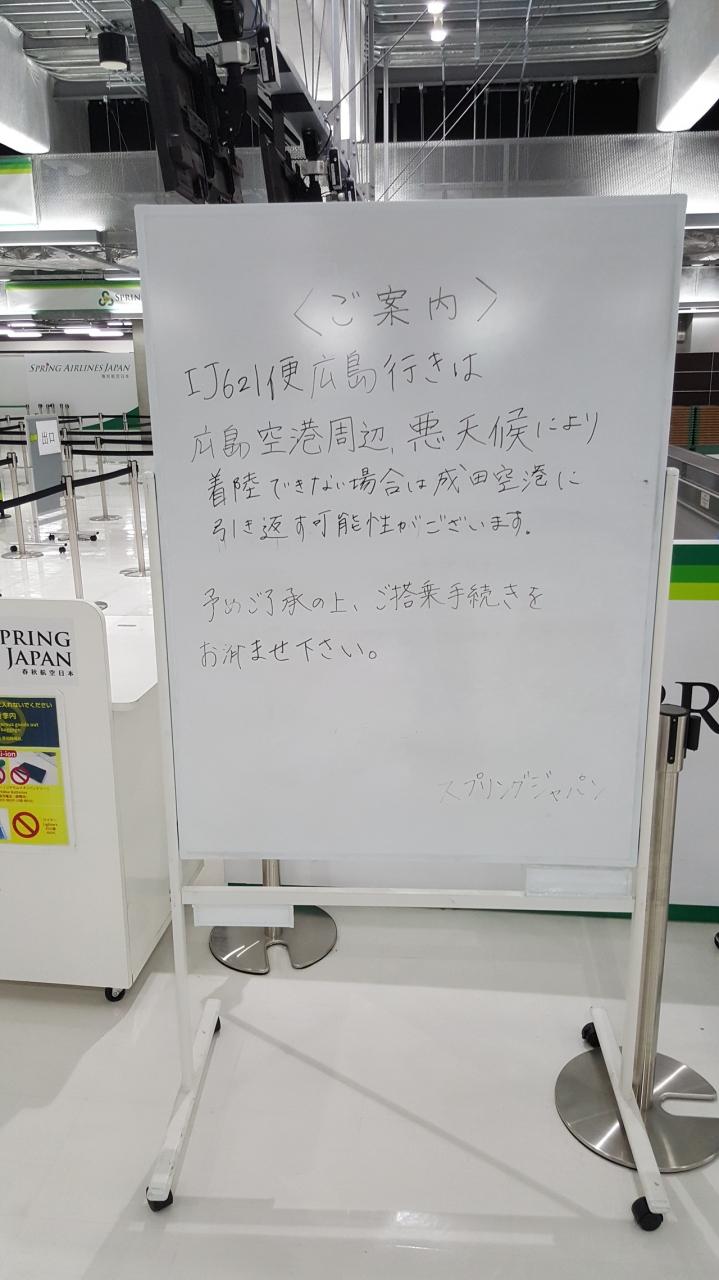 SPRING
SPRING AIRLINES JAPAN
春秋航空日本
出口
〈ご案内〉
IJ621便広島行きは
広島空港周辺、悪天候により
着陸できない場合は成田空港に
引き返す可能性がございます。
予めご了承の上、ご搭乗手続きを
お済ませ下さい。
スプリングジャパン
PRING
JAPAN
春秋航空日本
に入れないでください
Li-ion